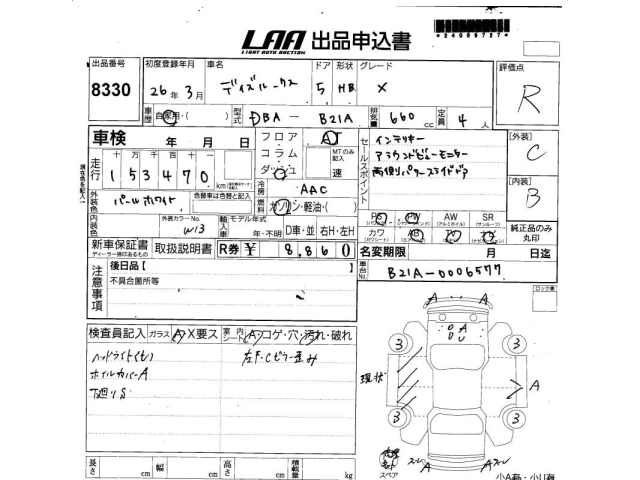 LAA 出品申込書
LIGHT AUTO AUCTION
*24088727*
出品番号 初度登録年月 車名 ドア 形状 グレード 評価点
8330 26年 3月 デイズルークス 5 HB X R
車歴 自家用・( ) 型式 DBA － B21A 排気量 660 cc 定員 4 人
車検 年 月 日 フロア AT
コラム MTのみ記入
ダッシュ 速
セールスポイント インテリキー
アラウンドビューモニター
両側パワースライドドア
[外装] C
[内装] B
走行 十 万 千 百 十
153470 km
冷房 AAC
外装色 パールホワイト 色替車は色替と記入
燃料 ガソリン・軽油・( )
内装色 外装カラーNo. W13
輸入車 モデル年式 年・不明 D車・並 右H・左H
PS PW AW SR
カワ AB TV ナビ
純正品のみ丸印
新車保証書 取扱説明書 R券 ¥ 8,860
ディーラー捺印あるもの
名変期限 月 日迄
車台No. B21A-0006577
注意事項 後日品[ ]
不具合箇所等
ロック車
検査員記入 ガラス A X要ス 室内シート A コゲ・穴・汚れ・破れ
ヘッドライト(も) 左F.Cピラー歪み
ホイルカバーA
下廻りS
現状
A A
A A
3 3
A
3 3
スペア
A A
長さ cm 幅 cm 高さ cm 積載量 kg
小A有・小U有